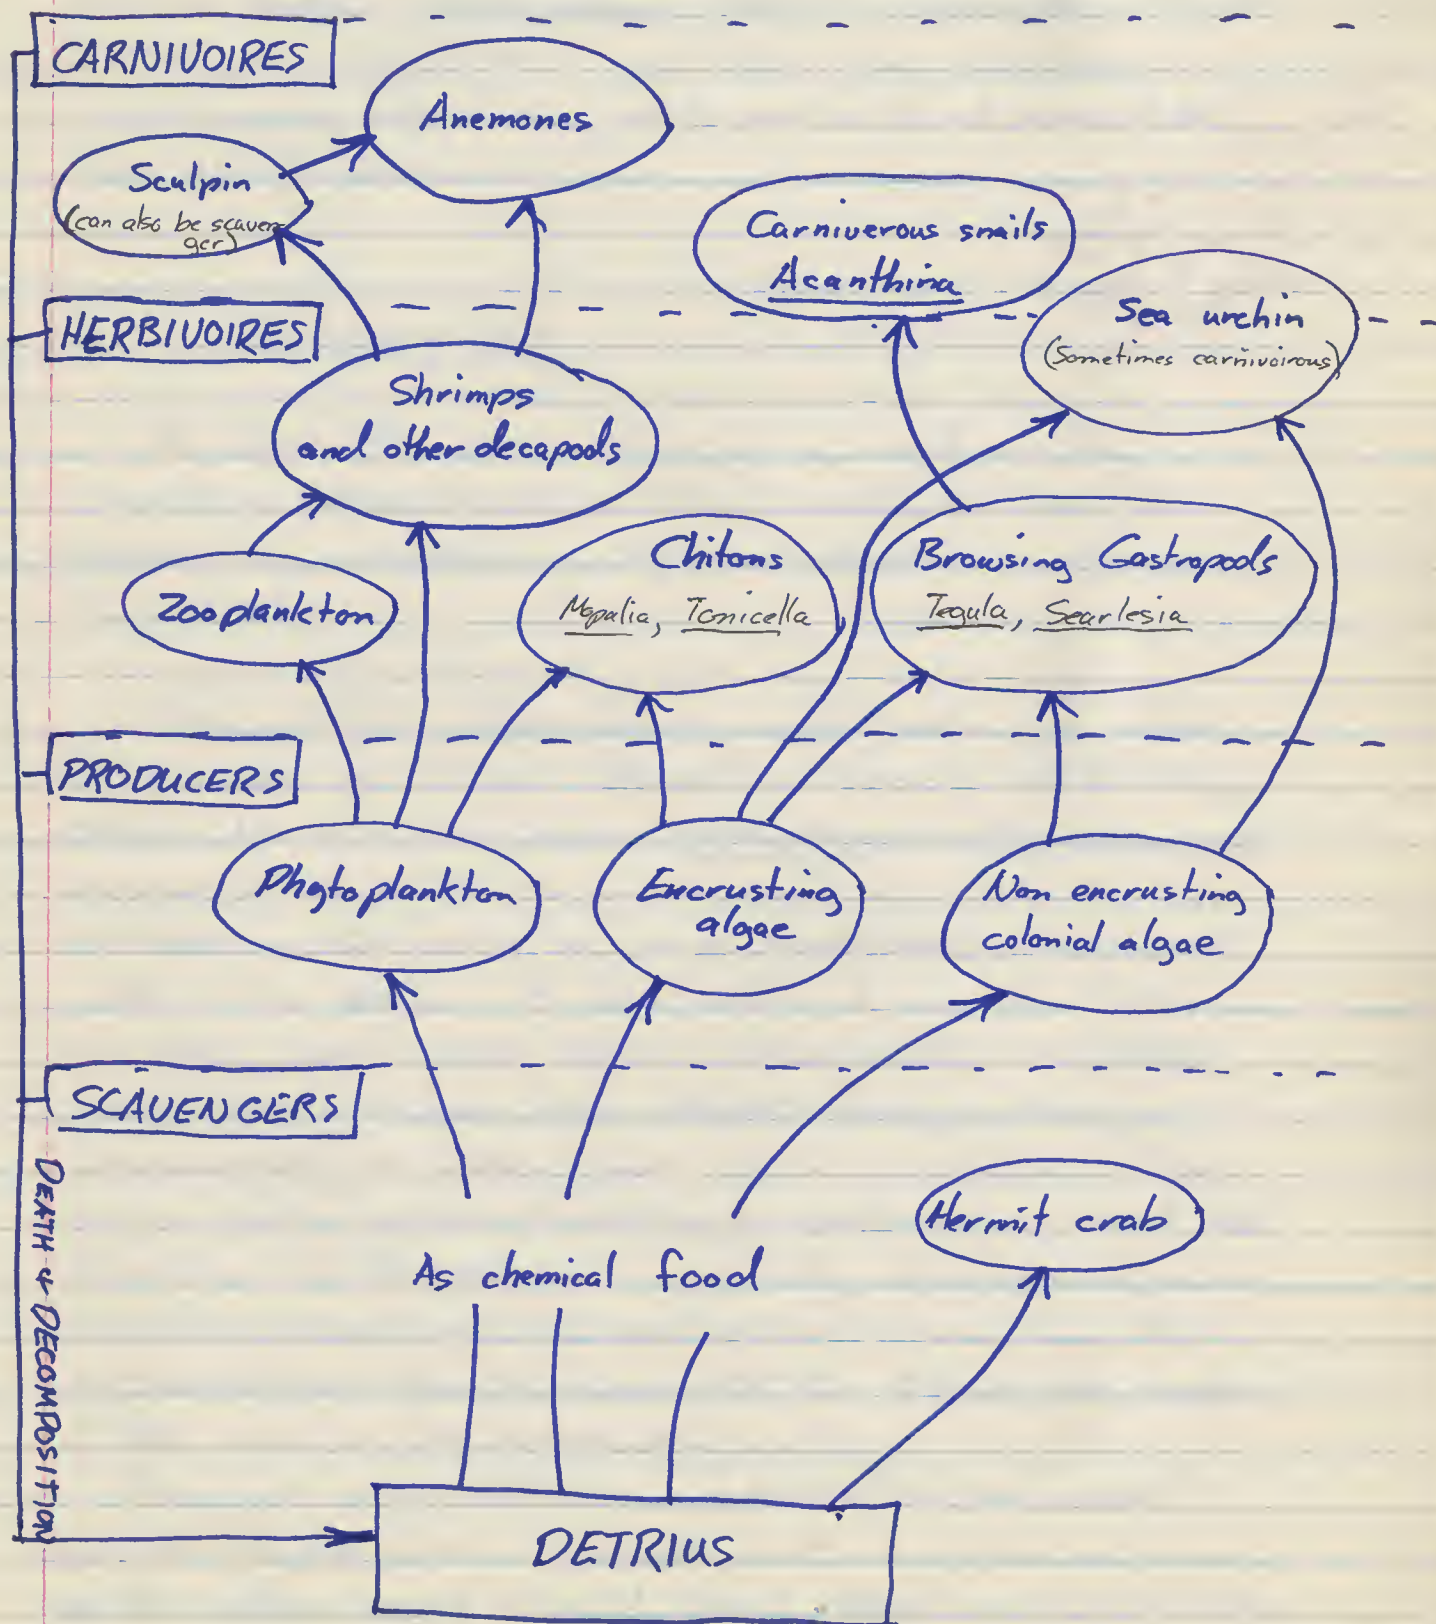 CARNIVOIRES
Anemones
Sculpin
(can also be scaven
ger)
Carniverous snails
Acanthina
HERBIVOIRES
Sea urchin
(Sometimes carnivoirous)
Shrimps
and other decapods
Chitons
Mopalia, Tonicella
Browsing Gastropods
Tegula, Searlesia
Zooplankton
PRODUCERS
Phytoplankton
Encrusting
algae
Non encrusting
colonial algae
SCAVENGERS
Hermit crab
As chemical food
DEATH & DECOMPOSITION
DETRIUS